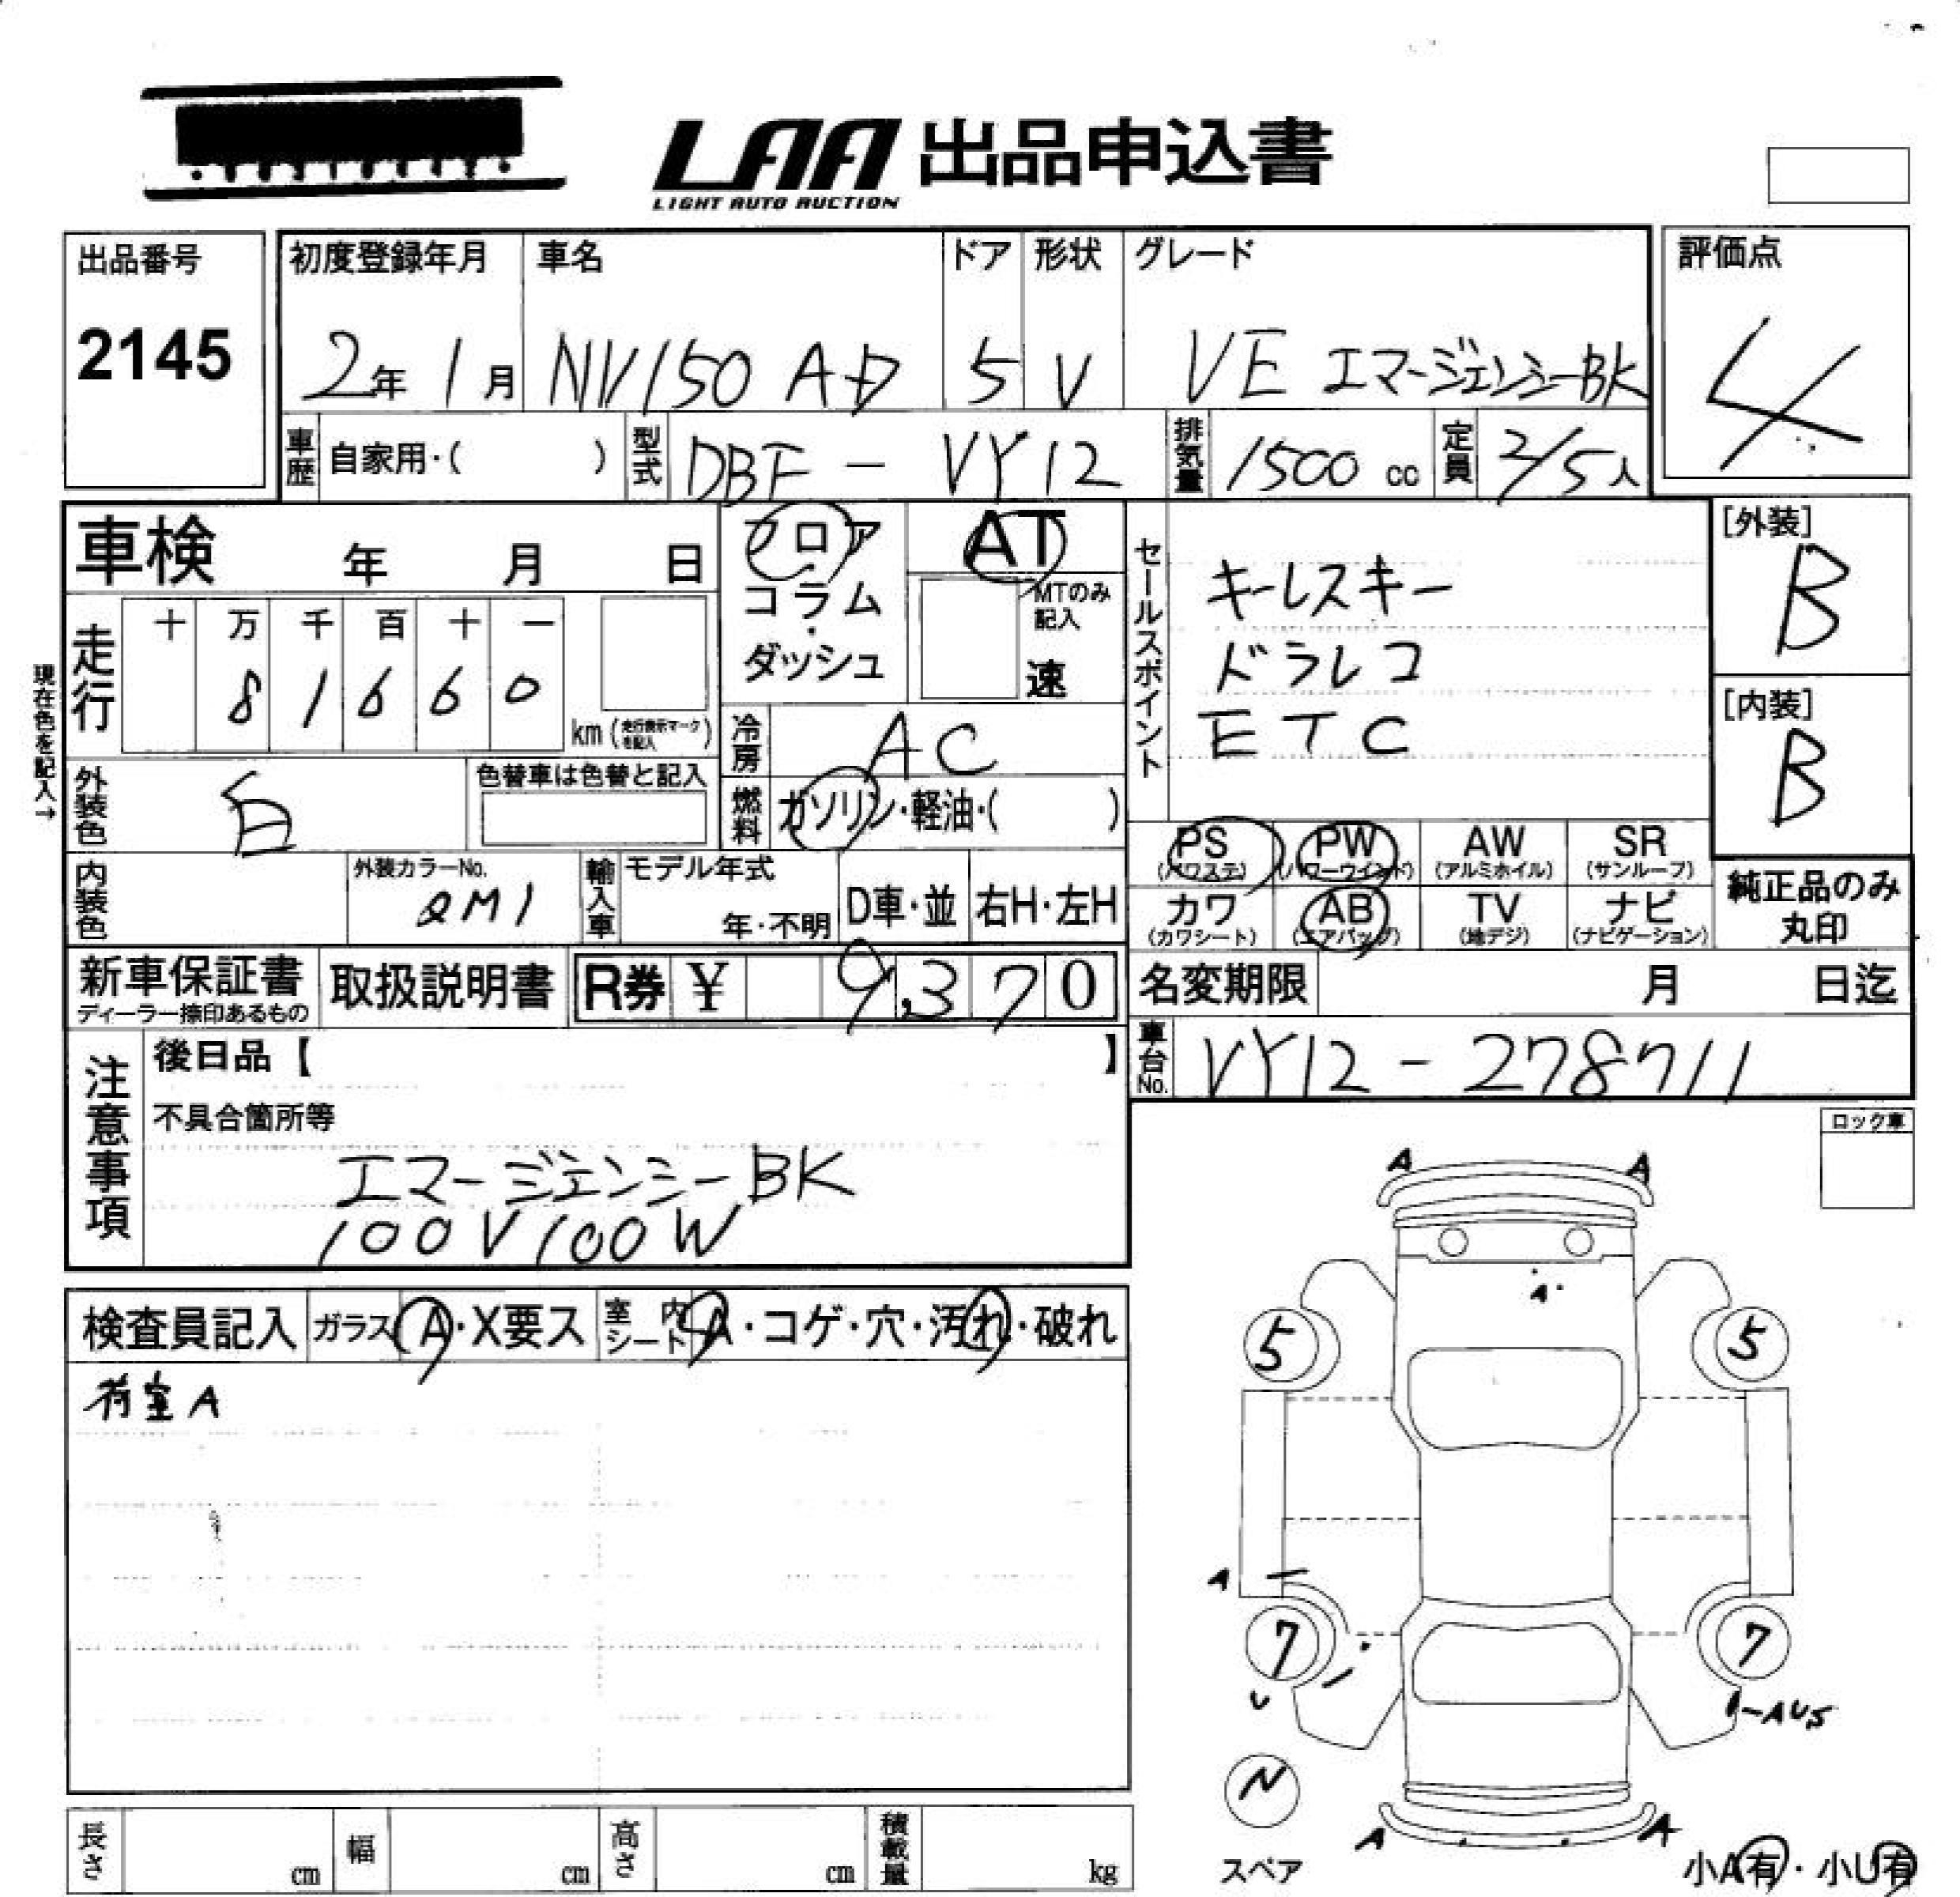 LAA 出品申込書
LIGHT AUTO AUCTION
出品番号
2145
初度登録年月
2年 1月
車名
NV150 AD
ドア
5
形状
V
グレード
VE エマージェンシーBK
評価点
4
車歴 自家用・( )
型式 DBF - VY12
排気量 1500 cc
定員 2/5人
車検 年 月 日
フロア
コラム
・
ダッシュ
AT
MTのみ
記入
速
セールスポイント
キーレスキー
ドラレコ
ETC
[外装]
B
[内装]
B
現在色を記入→
走行
十 万 千 百 十 一
8 1 6 6 0
km (走行表示マークを記入)
冷房 AC
外装色 白
色替車は色替と記入
燃料 ガソリン・軽油・( )
PS (パワステ)
PW (パワーウインド)
AW (アルミホイル)
SR (サンルーフ)
カワ (カワシート)
AB (エアバッグ)
TV (地デジ)
ナビ (ナビゲーション)
純正品のみ
丸印
内装色
外装カラーNo.
QM1
輸入車
モデル年式
年・不明
D車・並
右H・左H
新車保証書
ディーラー捺印あるもの
取扱説明書
R券 ¥ 9,370
名変期限 月 日迄
車台No. VY12 - 278711
注意事項
後日品【 】
不具合箇所等
エマージェンシーBK
100V100W
ロック車
検査員記入
ガラス A・X要ス
室内シート A・コゲ・穴・汚れ・破れ
荷室A
A A
A
5 5
A
7 7
U
AUS
N
スペア
A A
小A有・小U有
長さ cm
幅 cm
高さ cm
積載量 kg